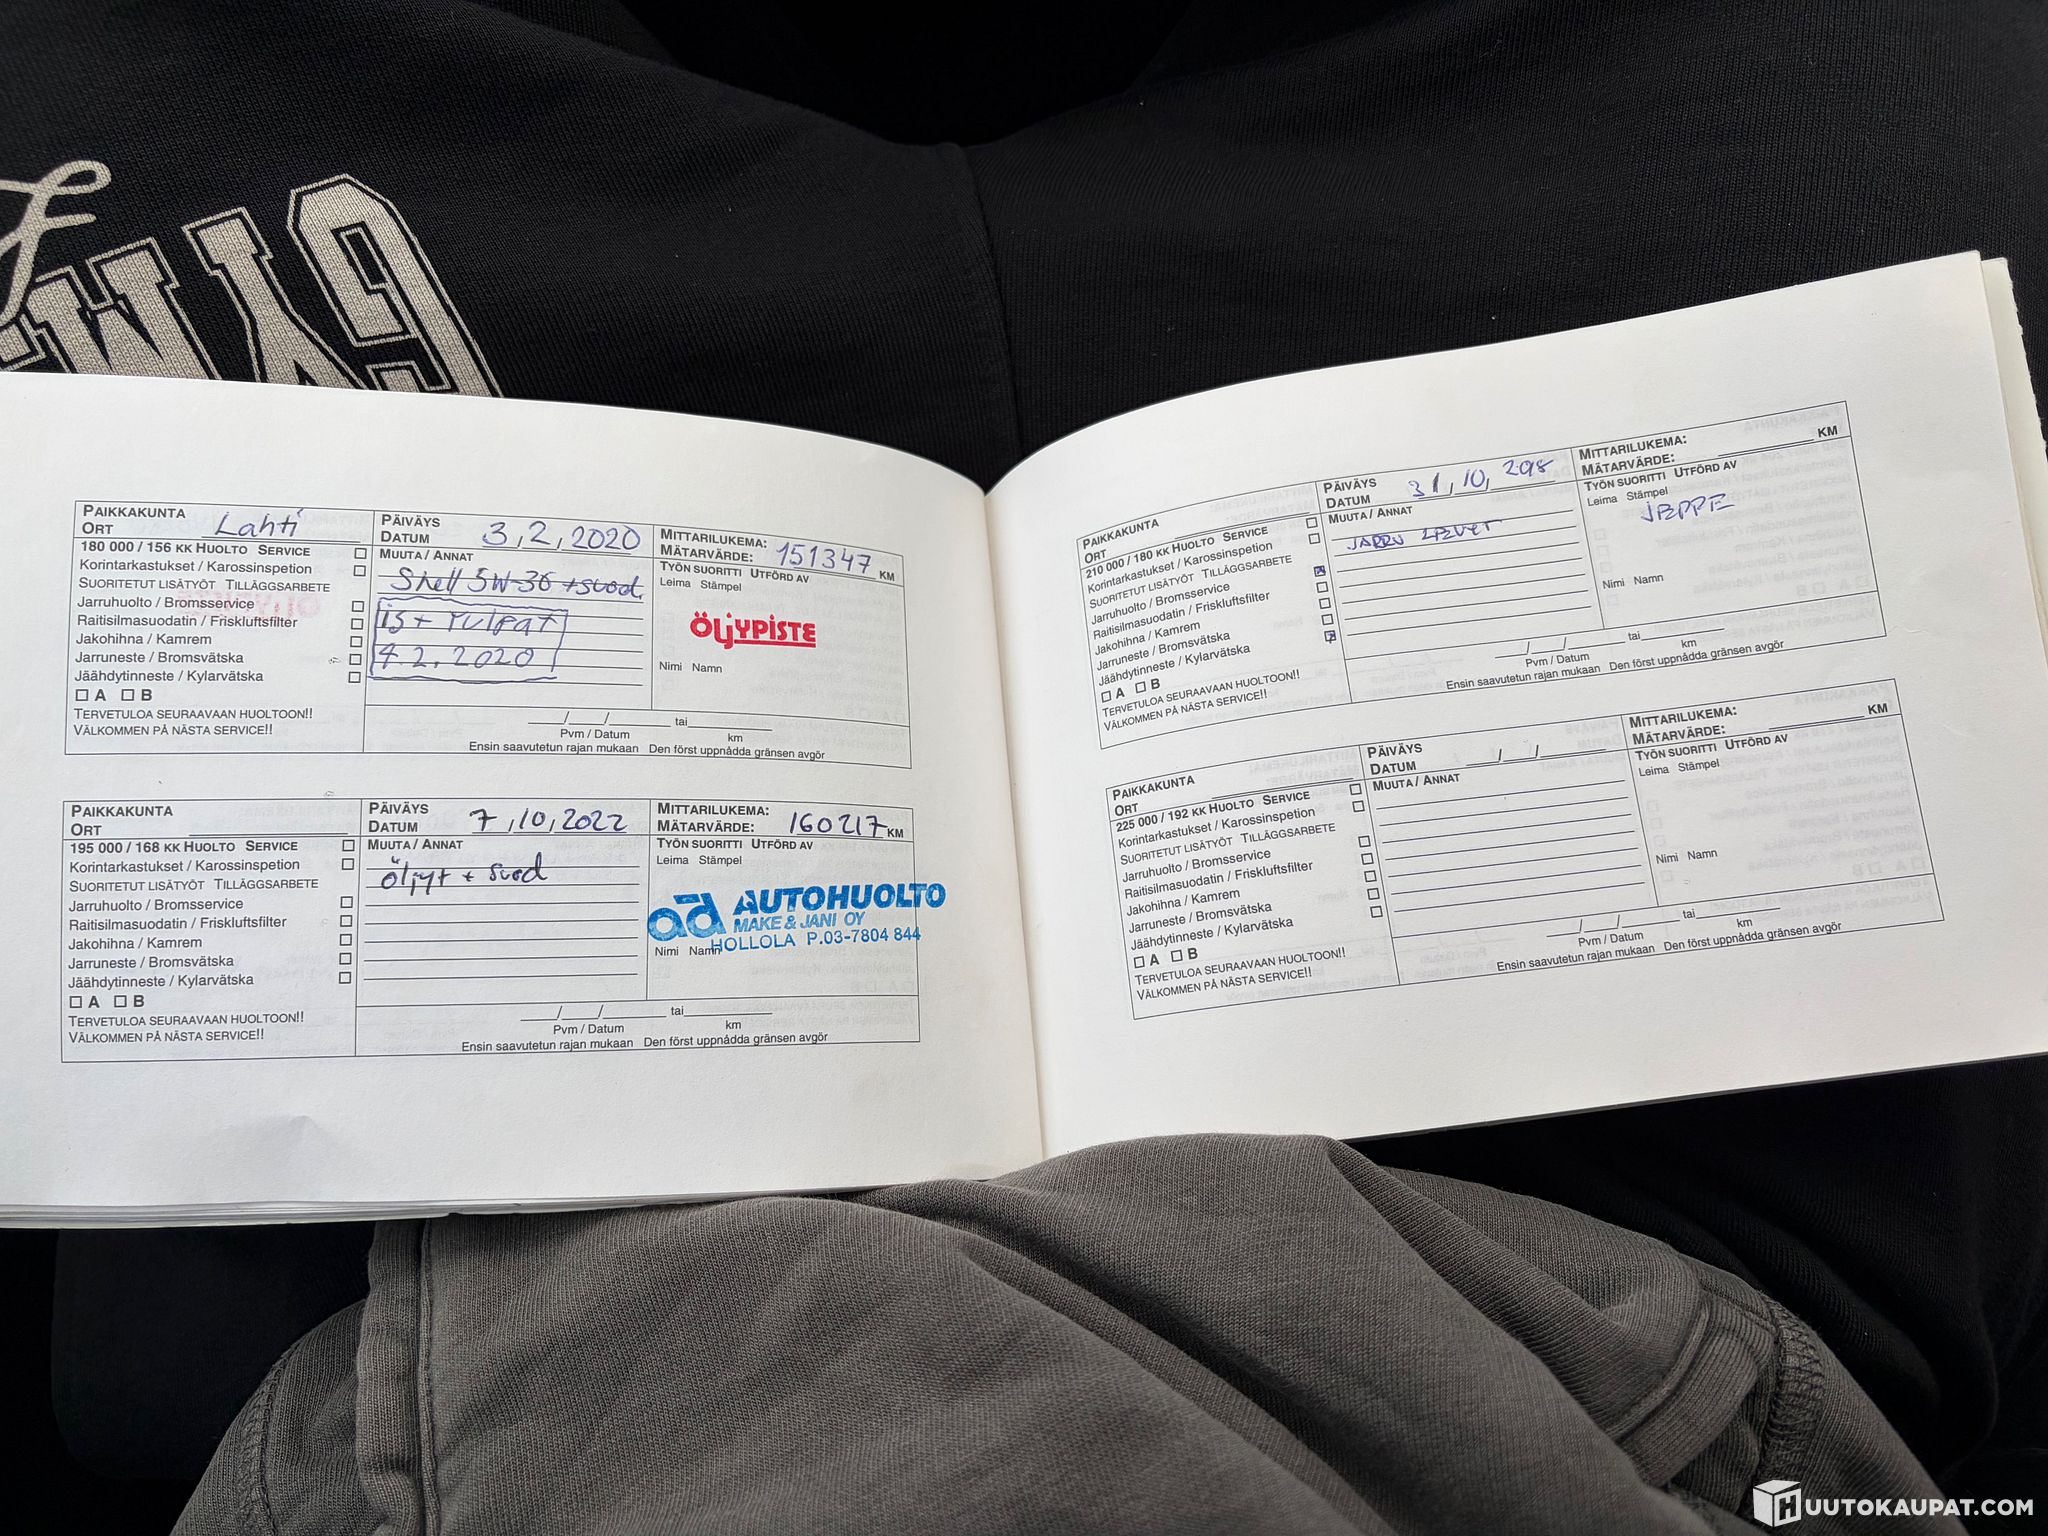 GYM
PAIKKAKUNTA
ORT Lahti
PÄIVÄYS
DATUM 3,2,2020
MITTARILUKEMA:
MÄTARVÄRDE: 151347 KM
180 000 / 156 KK HUOLTO SERVICE
Korintarkastukset / Karossinspetion
SUORITETUT LISÄTYÖT TILLÄGGSARBETE
Jarruhuolto / Bromsservice
Raitisilmasuodatin / Friskluftsfilter
Jakohihna / Kamrem
Jarruneste / Bromsvätska
Jäähdytinneste / Kylarvätska
A B
TERVETULOA SEURAAVAAN HUOLTOON!!
VÄLKOMMEN PÅ NÄSTA SERVICE!!
MUUTA / ANNAT
Shell 5W-30 + suod.
is+ tulpat
4.2.2020
TYÖN SUORITTI UTFÖRD AV
Leima Stämpel
ÖLJYPISTE
Nimi Namn
___/___/______ tai__________
Pvm / Datum km
Ensin saavutetun rajan mukaan Den först uppnådda gränsen avgör
PAIKKAKUNTA
ORT
PÄIVÄYS
DATUM 7,10,2022
MITTARILUKEMA:
MÄTARVÄRDE: 160217 KM
195 000 / 168 KK HUOLTO SERVICE
Korintarkastukset / Karossinspetion
SUORITETUT LISÄTYÖT TILLÄGGSARBETE
Jarruhuolto / Bromsservice
Raitisilmasuodatin / Friskluftsfilter
Jakohihna / Kamrem
Jarruneste / Bromsvätska
Jäähdytinneste / Kylarvätska
A B
TERVETULOA SEURAAVAAN HUOLTOON!!
VÄLKOMMEN PÅ NÄSTA SERVICE!!
MUUTA / ANNAT
öljyt + suod
TYÖN SUORITTI UTFÖRD AV
Leima Stämpel
ad AUTOHUOLTO
MAKE & JANI OY
HOLLOLA P.03-7804 844
Nimi Namn
___/___/______ tai__________
Pvm / Datum km
Ensin saavutetun rajan mukaan Den först uppnådda gränsen avgör
PAIKKAKUNTA
ORT
PÄIVÄYS
DATUM 31,10,2018
MITTARILUKEMA:
MÄTARVÄRDE: KM
210 000 / 180 KK HUOLTO SERVICE
Korintarkastukset / Karossinspetion
SUORITETUT LISÄTYÖT TILLÄGGSARBETE
Jarruhuolto / Bromsservice
Raitisilmasuodatin / Friskluftsfilter
Jakohihna / Kamrem
Jarruneste / Bromsvätska
Jäähdytinneste / Kylarvätska
A B
TERVETULOA SEURAAVAAN HUOLTOON!!
VÄLKOMMEN PÅ NÄSTA SERVICE!!
MUUTA / ANNAT
JARRU
TYÖN SUORITTI UTFÖRD AV
Leima Stämpel
JEPPE
Nimi Namn
___/___/______ tai__________
Pvm / Datum km
Ensin saavutetun rajan mukaan Den först uppnådda gränsen avgör
PAIKKAKUNTA
ORT
PÄIVÄYS
DATUM ___/___/______
MITTARILUKEMA:
MÄTARVÄRDE: KM
225 000 / 192 KK HUOLTO SERVICE
Korintarkastukset / Karossinspetion
SUORITETUT LISÄTYÖT TILLÄGGSARBETE
Jarruhuolto / Bromsservice
Raitisilmasuodatin / Friskluftsfilter
Jakohihna / Kamrem
Jarruneste / Bromsvätska
Jäähdytinneste / Kylarvätska
A B
TERVETULOA SEURAAVAAN HUOLTOON!!
VÄLKOMMEN PÅ NÄSTA SERVICE!!
MUUTA / ANNAT
TYÖN SUORITTI UTFÖRD AV
Leima Stämpel
Nimi Namn
___/___/______ tai__________
Pvm / Datum km
Ensin saavutetun rajan mukaan Den först uppnådda gränsen avgör
HUUTOKAUPAT.COM